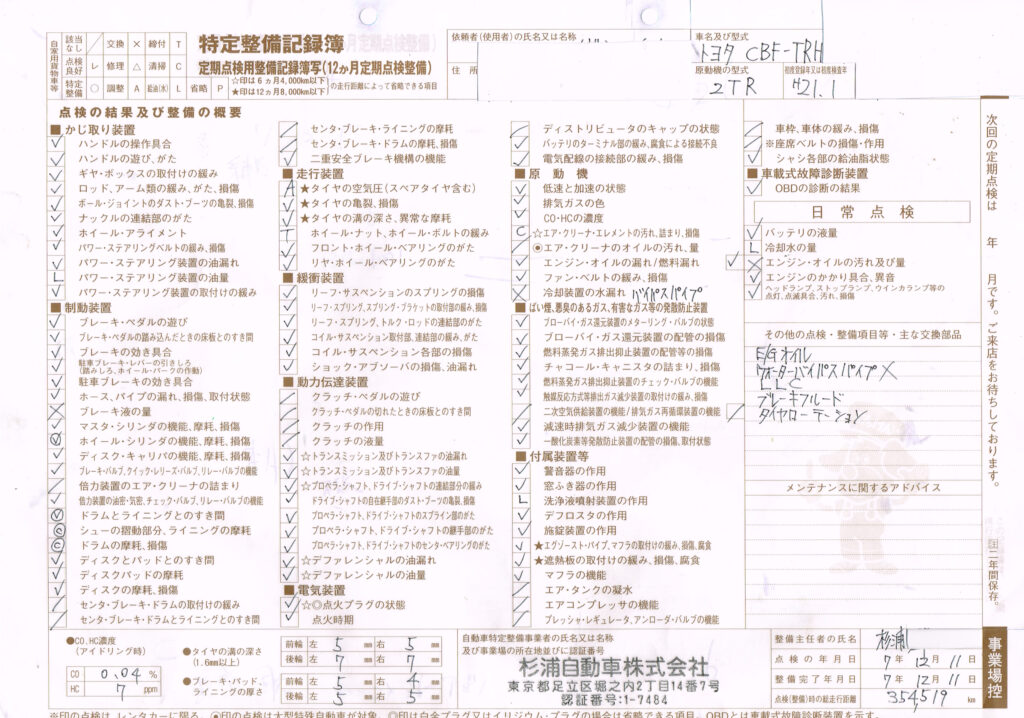 自家用貨物車等
該当なし ／ 交換 × 締付 T
点検良好 レ 修理 △ 清掃 C
特定整備 ○ 調整 A 給油(水) L 省略 P
特定整備記録簿
定期点検用整備記録簿写(12か月定期点検整備)
☆印は6ヵ月4,000km以下
★印は12ヵ月8,000km以下
の走行距離によって省略できる項目
依頼者(使用者)の氏名又は名称
住所
車名及び型式
トヨタ CBF-TRH
原動機の型式
2TR
初度登録年又は初度検査年
H21.1
点検の結果及び整備の概要
■かじ取り装置
レ ハンドルの操作具合
レ ハンドルの遊び、がた
レ ギヤ・ボックスの取付けの緩み
レ ロッド、アーム類の緩み、がた、損傷
レ ボール・ジョイントのダスト・ブーツの亀裂、損傷
レ ナックルの連結部のがた
レ ホイール・アライメント
パワー・ステアリングベルトの緩み、損傷
レ パワー・ステアリング装置の油漏れ
L パワー・ステアリング装置の油量
レ パワー・ステアリング装置の取付けの緩み
■制動装置
レ ブレーキ・ペダルの遊び
レ ブレーキ・ペダルの踏み込んだときの床板とのすき間
レ ブレーキの効き具合
レ 駐車ブレーキ・レバーの引きしろ
(踏みしろ、ホイール・パークの作動)
レ 駐車ブレーキの効き具合
レ ホース、パイプの漏れ、損傷、取付状態
× ブレーキ液の量
マスタ・シリンダの機能、摩耗、損傷
ホイール・シリンダの機能、摩耗、損傷
レ ディスク・キャリパの機能、摩耗、損傷
ブレーキ・バルブ、クイック・レリーズ・バルブ、リレー・バルブの機能
／ 倍力装置のエア・クリーナの詰まり
倍力装置の油密・気密、チェック・バルブ、リレー・バルブの機能
ドラムとライニングとのすき間
シューの摺動部分、ライニングの摩耗
ドラムの摩耗、損傷
レ ディスクとパッドとのすき間
レ ディスクパッドの摩耗
レ ディスクの摩耗、損傷
／ センタ・ブレーキ・ドラムの取付けの緩み
／ センタ・ブレーキ・ドラムとライニングとのすき間
／ センタ・ブレーキ・ライニングの摩耗
／ センタ・ブレーキ・ドラムの摩耗、損傷
二重安全ブレーキ機構の機能
■走行装置
A ★タイヤの空気圧(スペアタイヤ含む)
レ ★タイヤの亀裂、損傷
レ ★タイヤの溝の深さ、異常な摩耗
T ホイール・ナット、ホイール・ボルトの緩み
レ フロント・ホイール・ベアリングのがた
レ リヤ・ホイール・ベアリングのがた
■緩衝装置
レ リーフ・サスペンションのスプリングの損傷
レ リーフ・スプリング、スプリング・ブラケットの取付部の緩み、損傷
リーフ・スプリング、トルク・ロッドの連結部のがた
コイル・サスペンション取付部、連結部の緩み、がた
コイル・サスペンション各部の損傷
レ ショック・アブソーバの損傷、油漏れ
■動力伝達装置
／ クラッチ・ペダルの遊び
／ クラッチ・ペダルの切れたときの床板とのすき間
／ クラッチの作用
／ クラッチの液量
レ ☆トランスミッション及びトランスファの油漏れ
レ ☆トランスミッション及びトランスファの油量
レ ☆プロペラ・シャフト、ドライブ・シャフトの連結部の緩み
ドライブ・シャフトの自在継手部のダスト・ブーツの亀裂、損傷
レ プロペラ・シャフト、ドライブ・シャフトのスプライン部のがた
レ プロペラ・シャフト、ドライブ・シャフトの継手部のがた
レ プロペラ・シャフト、ドライブ・シャフトのセンタ・ベアリングのがた
レ ☆デファレンシャルの油漏れ
レ ☆デファレンシャルの油量
■電気装置
レ ☆◎点火プラグの状態
レ 点火時期
／ ディストリビュータのキャップの状態
レ バッテリのターミナル部の緩み、腐食による接続不良
レ 電気配線の接続部の緩み、損傷
■原動機
レ 低速と加速の状態
レ 排気ガスの色
レ CO・HCの濃度
C ☆エア・クリーナ・エレメントの汚れ、詰まり、損傷
／ ◉エア・クリーナのオイルの汚れ、量
レ エンジン・オイルの漏れ/燃料漏れ レ
レ ファン・ベルトの緩み、損傷
× 冷却装置の水漏れ バイパスパイプ
■ばい煙、悪臭のあるガス、有害なガス等の発散防止装置
レ ブローバイ・ガス還元装置のメターリング・バルブの状態
レ ブローバイ・ガス還元装置の配管の損傷
レ 燃料蒸発ガス排出抑止装置の配管等の損傷
レ チャコール・キャニスタの詰まり、損傷
レ 燃料蒸発ガス排出抑止装置のチェック・バルブの機能
レ 触媒反応方式等排出ガス減少装置の取付けの緩み、損傷
／ 二次空気供給装置の機能/排気ガス再循環装置の機能 ／
レ 減速時排気ガス減少装置の機能
レ 一酸化炭素等発散防止装置の配管の損傷、取付状態
■付属装置等
レ 警音器の作用
レ 窓ふき器の作用
L 洗浄液噴射装置の作用
レ デフロスタの作用
レ 施錠装置の作用
レ ★エグゾースト・パイプ、マフラの取付けの緩み、損傷、腐食
レ ★遮熱板の取付けの緩み、損傷、腐食
レ マフラの機能
／ エア・タンクの凝水
／ エアコンプレッサの機能
／ プレッシャ・レギュレータ、アンローダ・バルブの機能
車枠、車体の緩み、損傷
／ ※座席ベルトの損傷・作用
レ シャシ各部の給油脂状態
■車載式故障診断装置
レ OBDの診断の結果
日常点検
レ バッテリの液量
L 冷却水の量
× エンジン・オイルの汚れ及び量
レ エンジンのかかり具合、異音
レ ヘッドランプ、ストップランプ、ウインカランプ等の
点灯、点滅具合、汚れ、損傷
その他の点検・整備項目等・主な交換部品
E/Gオイル
ウォーターバイパスパイプ×
LLC
ブレーキフルード
タイヤローテーション
メンテナンスに関するアドバイス
次回の定期点検は 年 月です。ご来店をお待ちしております。
二年間保存。
事業場控
●CO、HC濃度
(アイドリング時)
CO 0.04 %
HC 7 ppm
●タイヤの溝の深さ
(1.6mm以上)
前輪 左 5 mm 右 5 mm
後輪 左 7 mm 右 7 mm
●ブレーキ・パッド、
ライニングの厚さ
前輪 左 5 mm 右 4 mm
後輪 左 5 mm 右 5 mm
自動車特定整備事業者の氏名又は名称
及び事業場の所在地並びに認証番号
杉浦自動車株式会社
東京都足立区堀之内2丁目14番7号
認証番号:1-7484
整備主任者の氏名 杉浦
点検の年月日 7年12月11日
整備完了年月日 7年12月11日
点検(整備)時の総走行距離 354,519 km
※印の点検は、レンタカーに限る。◉印の点検は大型特殊自動車が対象。◎印は白金プラグ又はイリジウム・プラグの場合は省略できる項目。OBDとは車載式故障診断装置を示す。